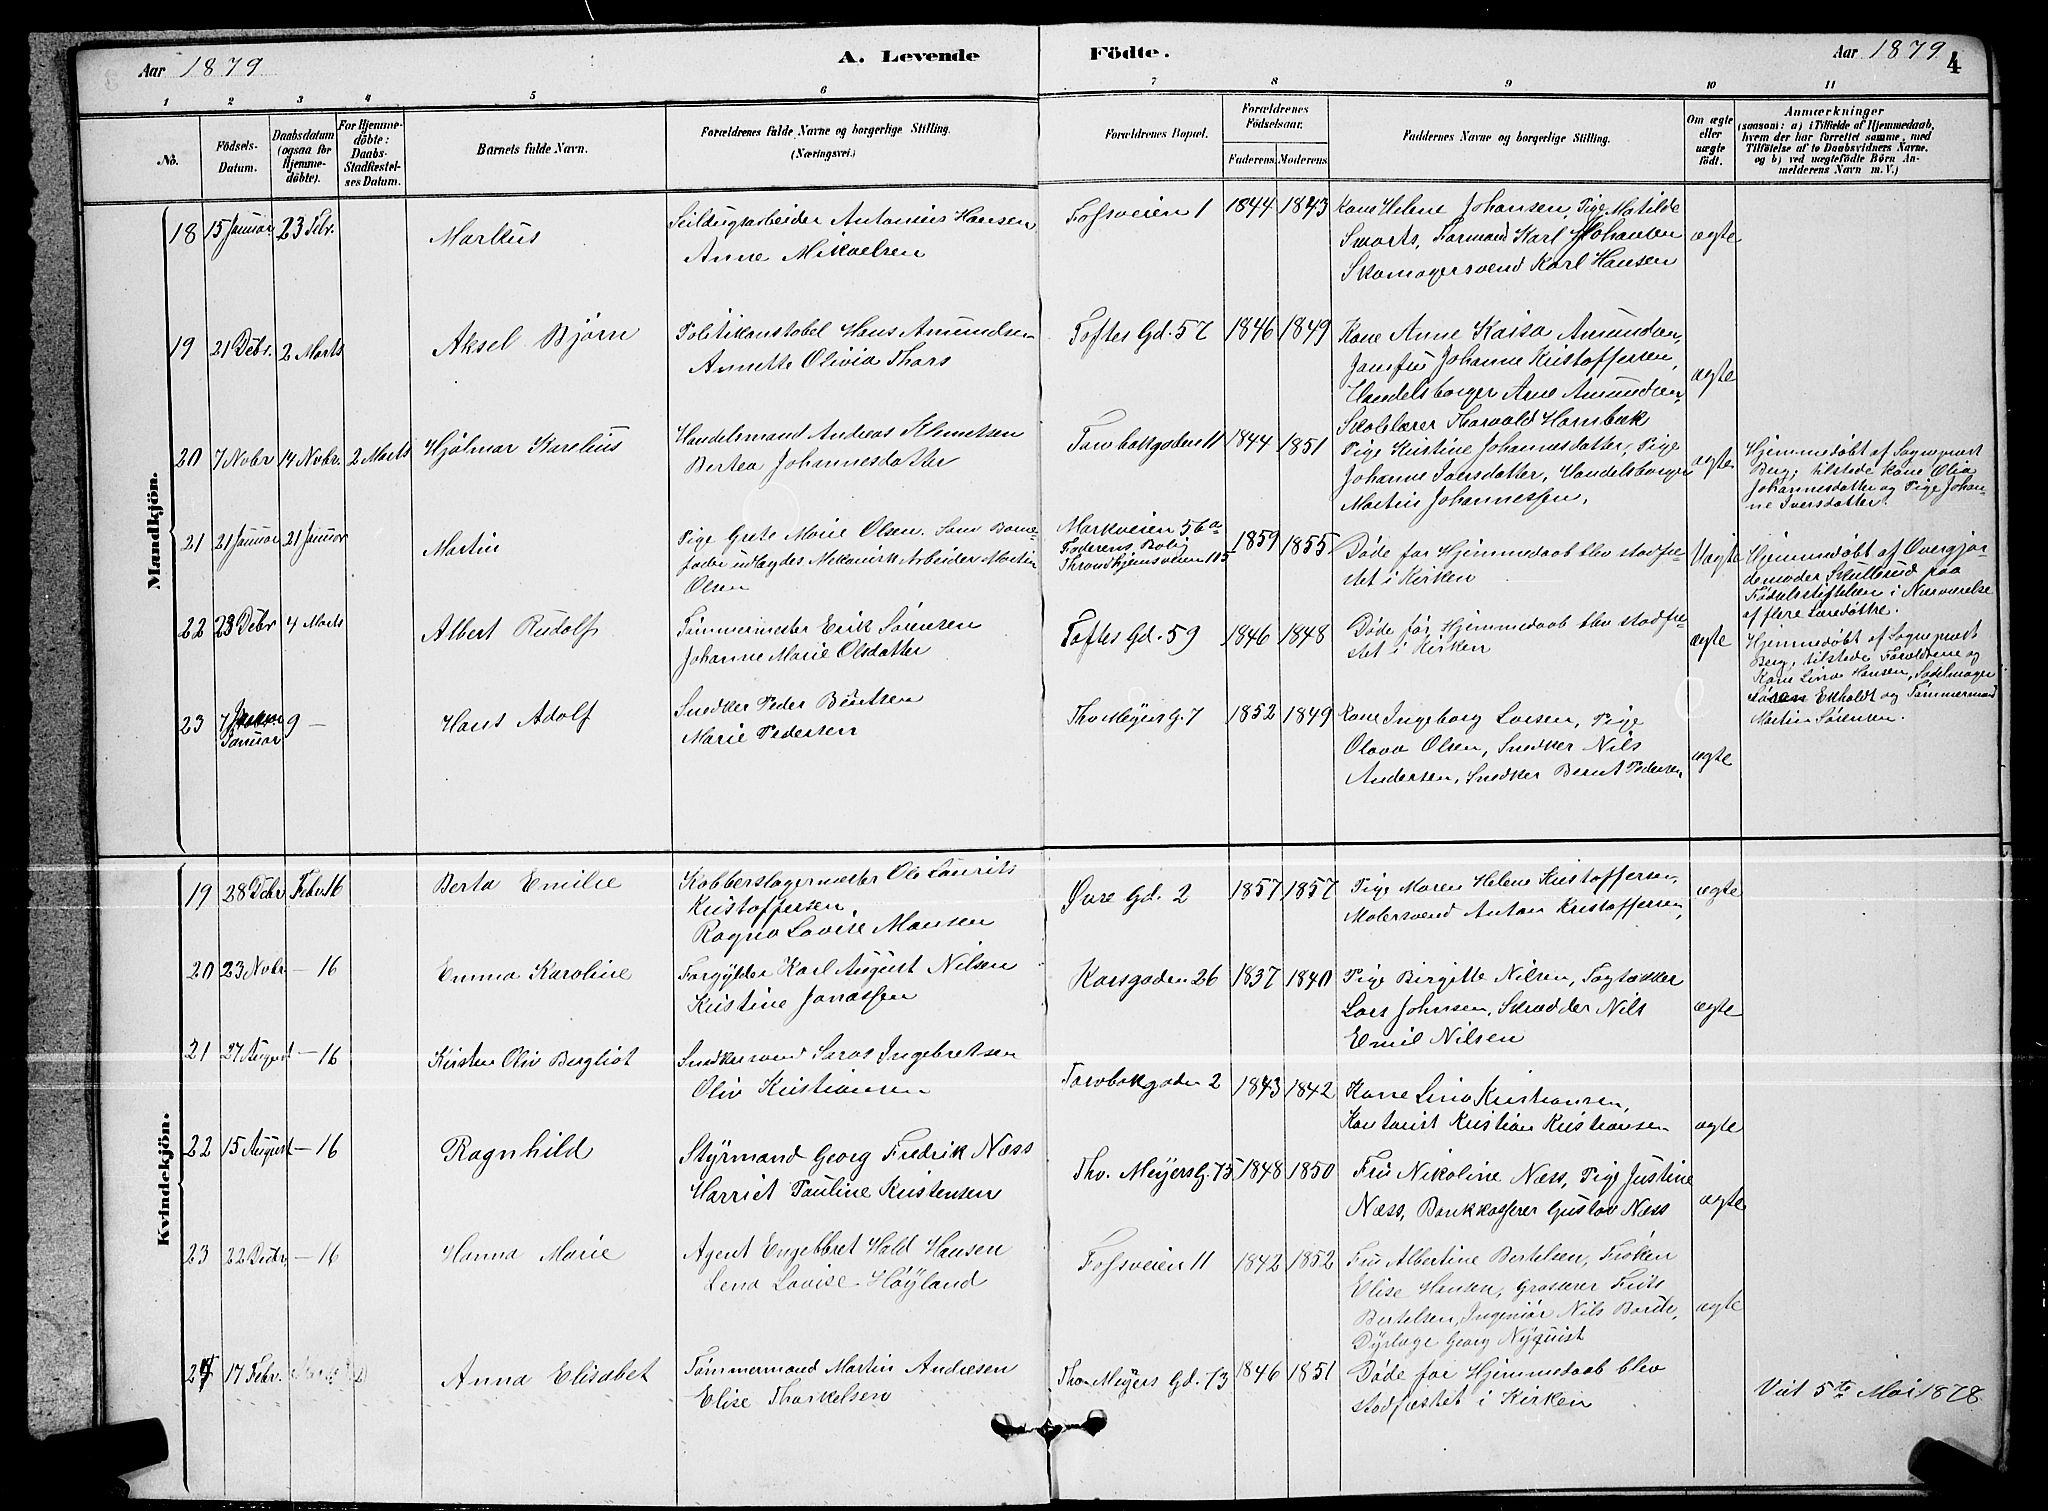 Aar 1879
A. Levende
Födte.
Aar 1879
4
1 2 3 4 5 6 7 8 9 10 11
No.
Födsels-
Datum.
Daabsdatum
(ogsaa for
Hjemme-
döbte).
For Hjemme-
döbte:
Daabs-
Stadfæstel-
ses Datum.
Barnets fulde Navn.
Forældrenes fulde Navne og borgerlige Stilling.
(Næringsvei.)
Forældrenes Bopæl.
Forældrenes
Födselsaar.
Faderens. Moderens.
Faddernes Navne og borgerlige Stilling.
Om ægte
eller
uægte
født.
Anmærkninger
(saasom: a) i Tilfælde af Hjemmedaab,
hvem der har forrettet samme, med
Tilföielse af to Daabsvidners Navne,
og b) ved uægtefödte Börn An-
melderens Navn m. V.)
Mandkjön.
18 15 Januar 23 Febr. Markus
Seildugsarbeider Antonius Hansen
Anne Mikaelsen
Fossveien 1 1844 1843
Kone Helene Johansen, Pige Matilde
Swarts, Formand Karl Johansen
Skomagersvend Karl Hansen
ægte
19 21 Debr. 2 Marts Aksel Bjørn
Politikonstabel Hans Amundsen
Annette Olivia Thors
Toftes Gd. 57 1846 1849
Kone Anne Kaisa Amundsen,
Jomfru Johanne Kristoffersen,
Handelsborger Arne Amundsen,
Skolelærer Harvald Hornbæk
ægte
20 7 Novbr 14 Novbr. 2 Marts Hjalmar Karelius
Handelsmand Andreas Klemetsen
Bertea Johannesdatter
Torvbakgaden 11 1844 1851
Pige Kristine Johannesdatter, Pige
Johanne Iversdatter, Handelsborger
Martin Johannessen,
ægte
Hjemmedøbt af Sogneprest
Berg; tilstede kone Olia
Johannesdatter og Pige Johan-
ne Iversdatter.
21 21 Januar 21 Januar Martin
Pige Grete Marie Olsen. Som Barne-
fader udlægdes Mekanisk Arbeider Martin
Olsen
Markveien 56a
Faderens Bolig
Throndhjemsveien 115
1859 1855
Døde før Hjemmedaab blev stadfæ-
stet i Kirken
Uægte
Hjemmedøbt af Overgjor-
demoder Skullerud paa
Fødselsstiftelsen i Nærværelse
af flere Læredøttre.
22 23 Debr 4 Marts Albert Rudolf
Tømmermester Erik Sørensen
Johanne Marie Olsdatter
Toftes Gd. 59 1846 1848
Døde før Hjemmedaab blev stadfæ-
stet i Kirken
ægte
Hjemmedøbt af Sogneprest
Berg, tilstede Forældrene og
Kone Lina Hansen, Sadelmager
Ekholdt og Tømmermand
Martin Sørensen.
23 7 Januar 9 — Hans Adolf
Snedker Peder Bentsen
Marie Pedersen
Thv Meyers G. 7 1852 1849
Kone Ingeborg Larsen, Pige
Olava Olsen, Snedker Nils
Andersen, Snedker Bernt Pedersen
ægte
Kvindekjön.
19 28 Debr Febr 16 Berta Emilie
Kobberslagermester Ole Laurits
Kristoffersen,
Ragna Lovise Monsen
Øvre Gd. 2 1857 1857
Pige Maren Helene Kristoffersen,
Malersvend Anton Kristoffersen,
ægte
20 23 Novbr — 16 Emma Karoline
Forgylder Karl August Nilsen
Kristine Jonassen
Korsgaden 26 1837 1840
Pige Birgitte Nilsen, Tagtækker
Lars Johnsen, Skrædder Nils
Emil Nilsen
ægte
21 27 August — 16 Kirsten Oliv Bergliot
Snedkersvend Ingebretsen
Oliv Kristiansen
Torvbakgaden 2 1843 1842
Kone Lina Kristiansen,
Kontorist Kristian Kristiansen
ægte
22 15 August — 16 Ragnhild
Styrmand Georg Fredrik Næss
Harriet Pauline Kristensen
Thv. Meyers G. 75 1848 1850
Fru Nikoline Næss, Pige Justine
Næss, Bankkasserer Gustav Næss
ægte
23 22 Debr — 16 Hanna Marie
Agent Engebbret Hald Hansen
Lena Lovise Høyland
Fossveien 11 1842 1852
Fru Albertine Bertelsen, Frøken
Elise Hansen, Grosserer Frits
Bertelsen, Ingeniør Nils
Dyrlæge Georg Nyquist
ægte
24 17 Febr. Anna Elisabet
Tømmermand Martin Andresen
Elise Thorkelsen
Thv Meyers Gd. 73 1846 1851
Døde før Hjemmedaab blev
stadfæstet i Kirken
Viet 5te Mai 1878